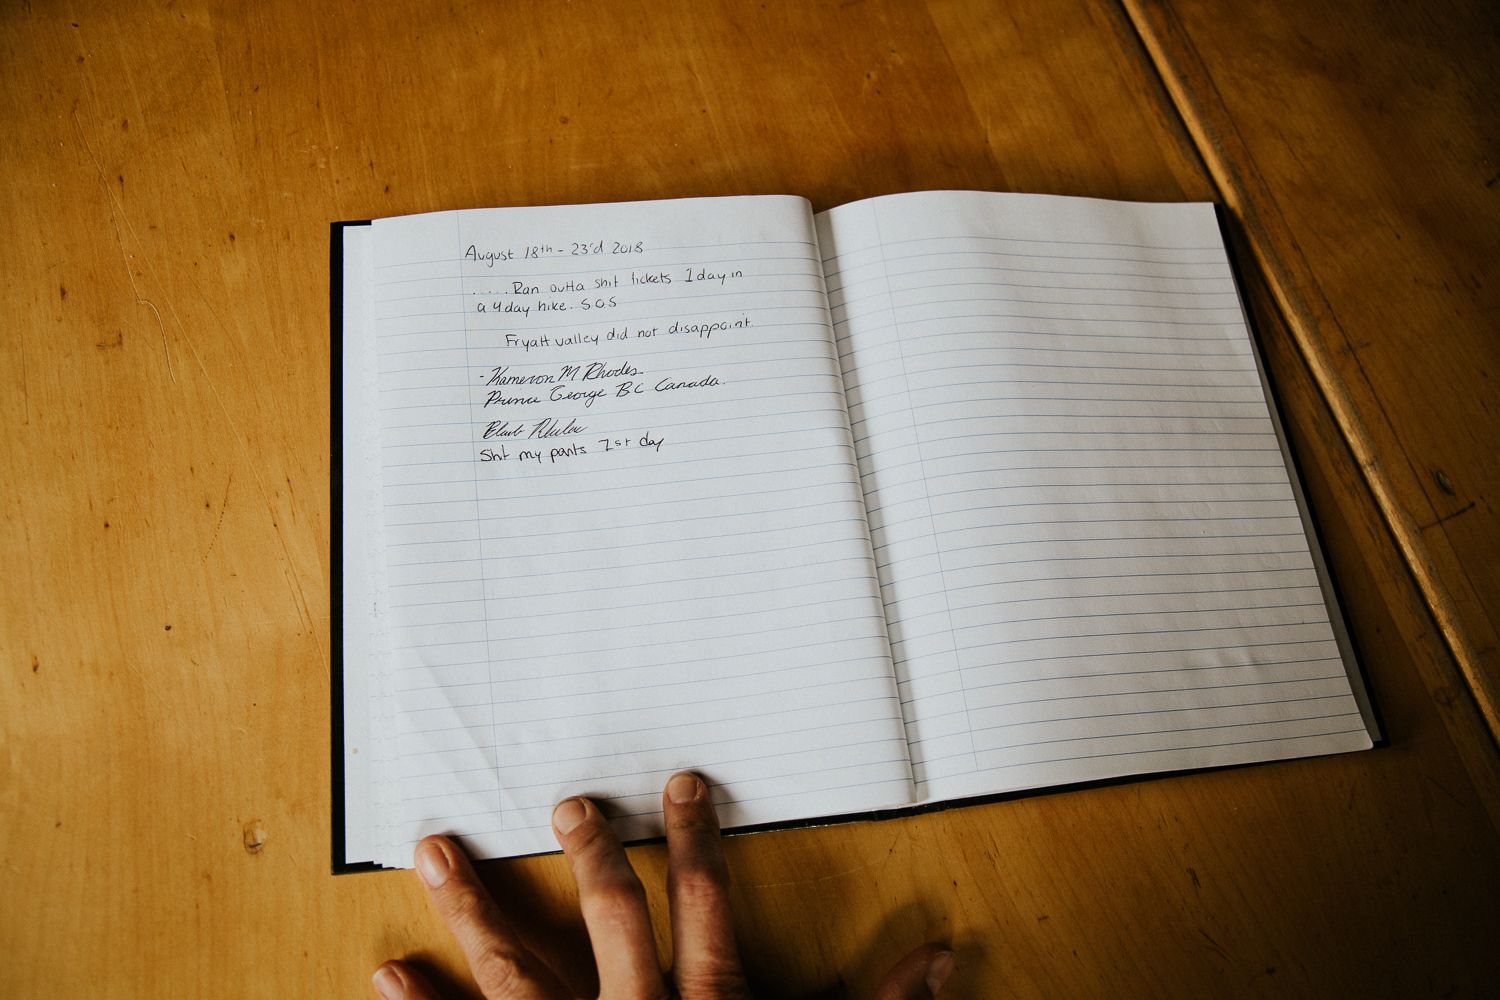 August 18th - 23'd 2018
.....Ran outta shit tickets 1 day in
a 4 day hike. SOS
Fryatt valley did not disappoint.
- Kameron M Rhodes
Prince George BC Canada.
Shit my pants 1st day